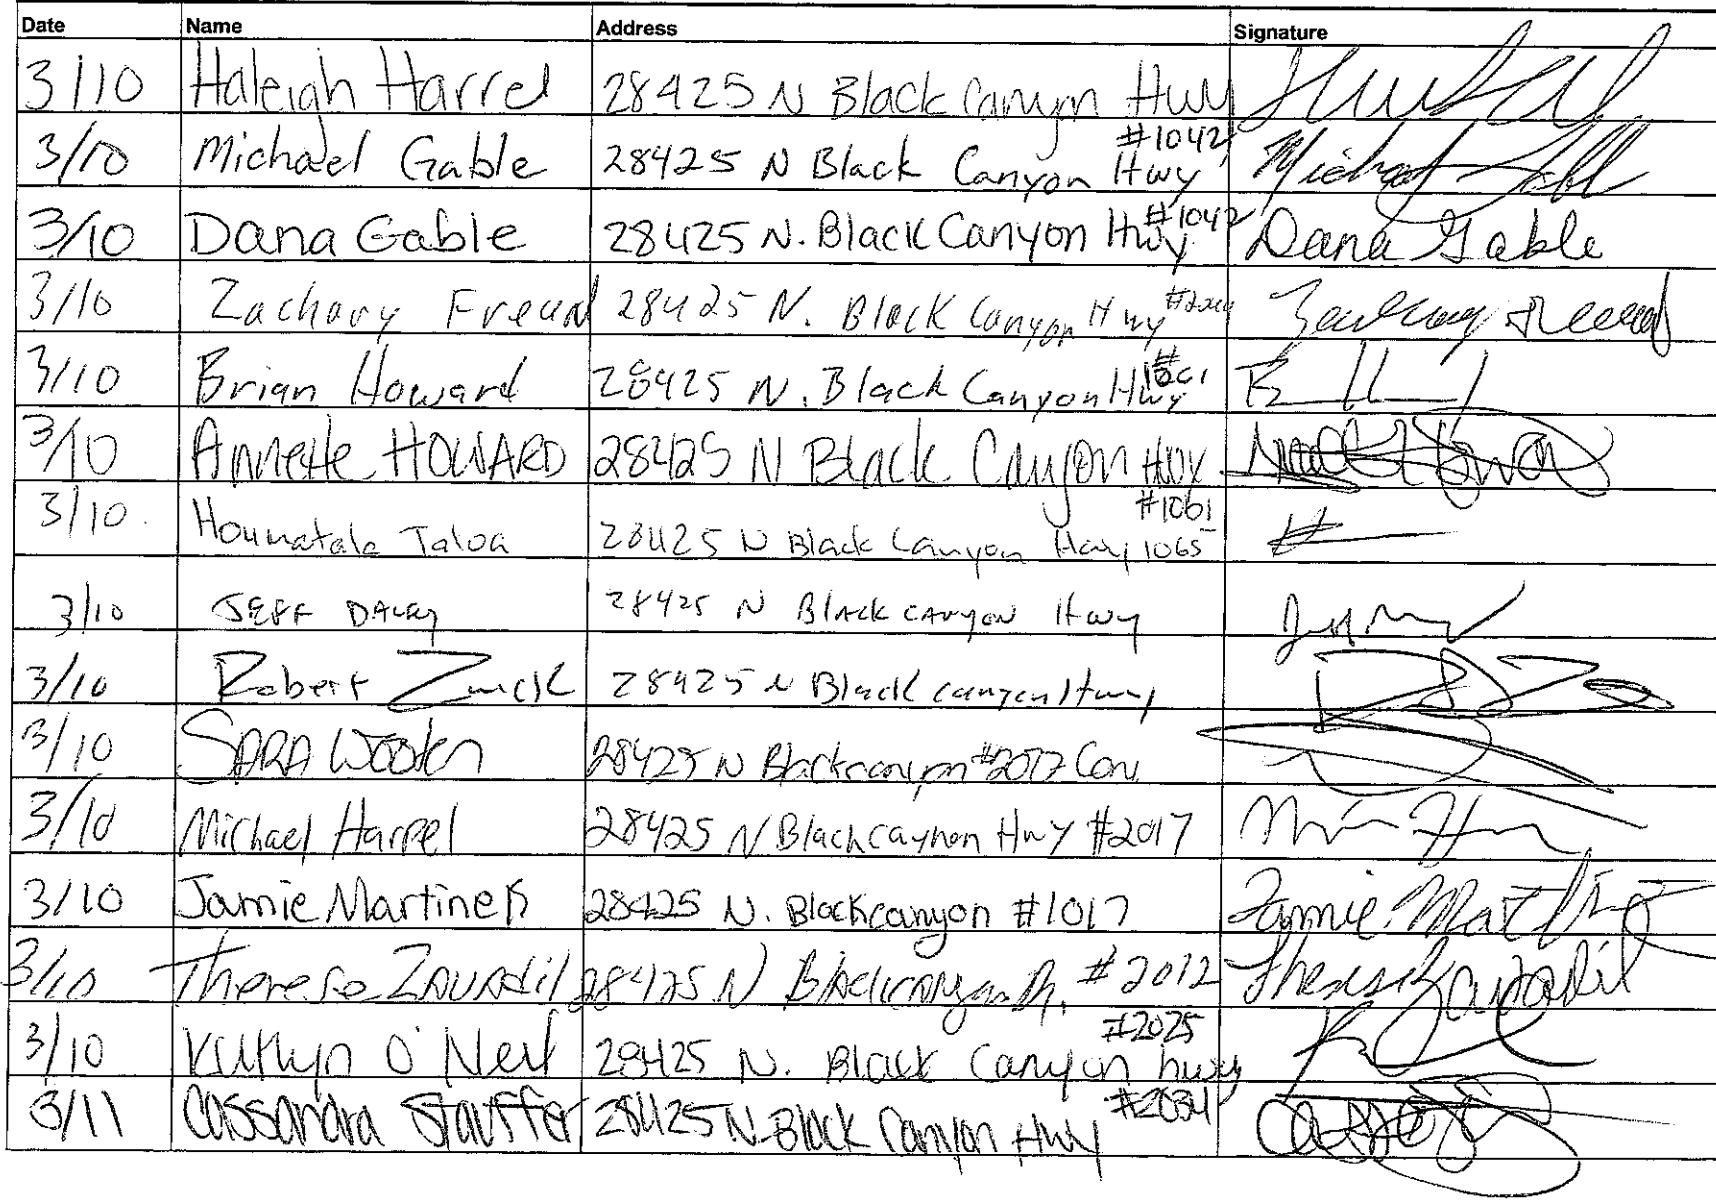 Date Name Address Signature
3/10 Haleigh Harrel 28425 N Black Canyon Hwy
3/10 Michael Gable 28425 N Black Canyon Hwy #1042 Michael Gable
3/10 Dana Gable 28425 N. Black Canyon Hwy #1042 Dana Gable
3/10 Zachary Freund 28425 N. Black Canyon Hwy
3/10 Brian Howard 28425 N. Black Canyon Hwy
3/10 Annette HOWARD 28425 N Black Canyon Hwy #1061
3/10 Taloa 28425 N Black Canyon Hwy 1065
3/10 JEFF DALEY 28425 N Black CANYON Hwy
3/10 Robert 28425 N Black canyon Hwy
3/10 SARA Wooten 28425 N Blackcanyon #2017
3/10 Michael Harrel 28425 N Blackcaynon Hwy #2017
3/10 Jamie Martinez 28425 N. Blackcanyon #1017 Jamie Martinez
3/10 Theresa Zavadil 28425 N Blackcanyon #2012 Theresa Zavadil
3/10 O'Neil 28425 N. Black Canyon hwy #2025
3/11 Cassandra Stauffer 28425 N. Black Canyon Hwy #2034